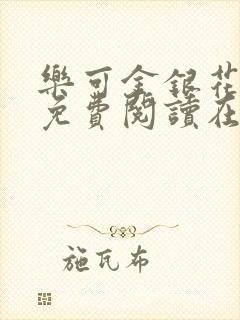 樂可金銀花
免費閱讀在
施瓦布